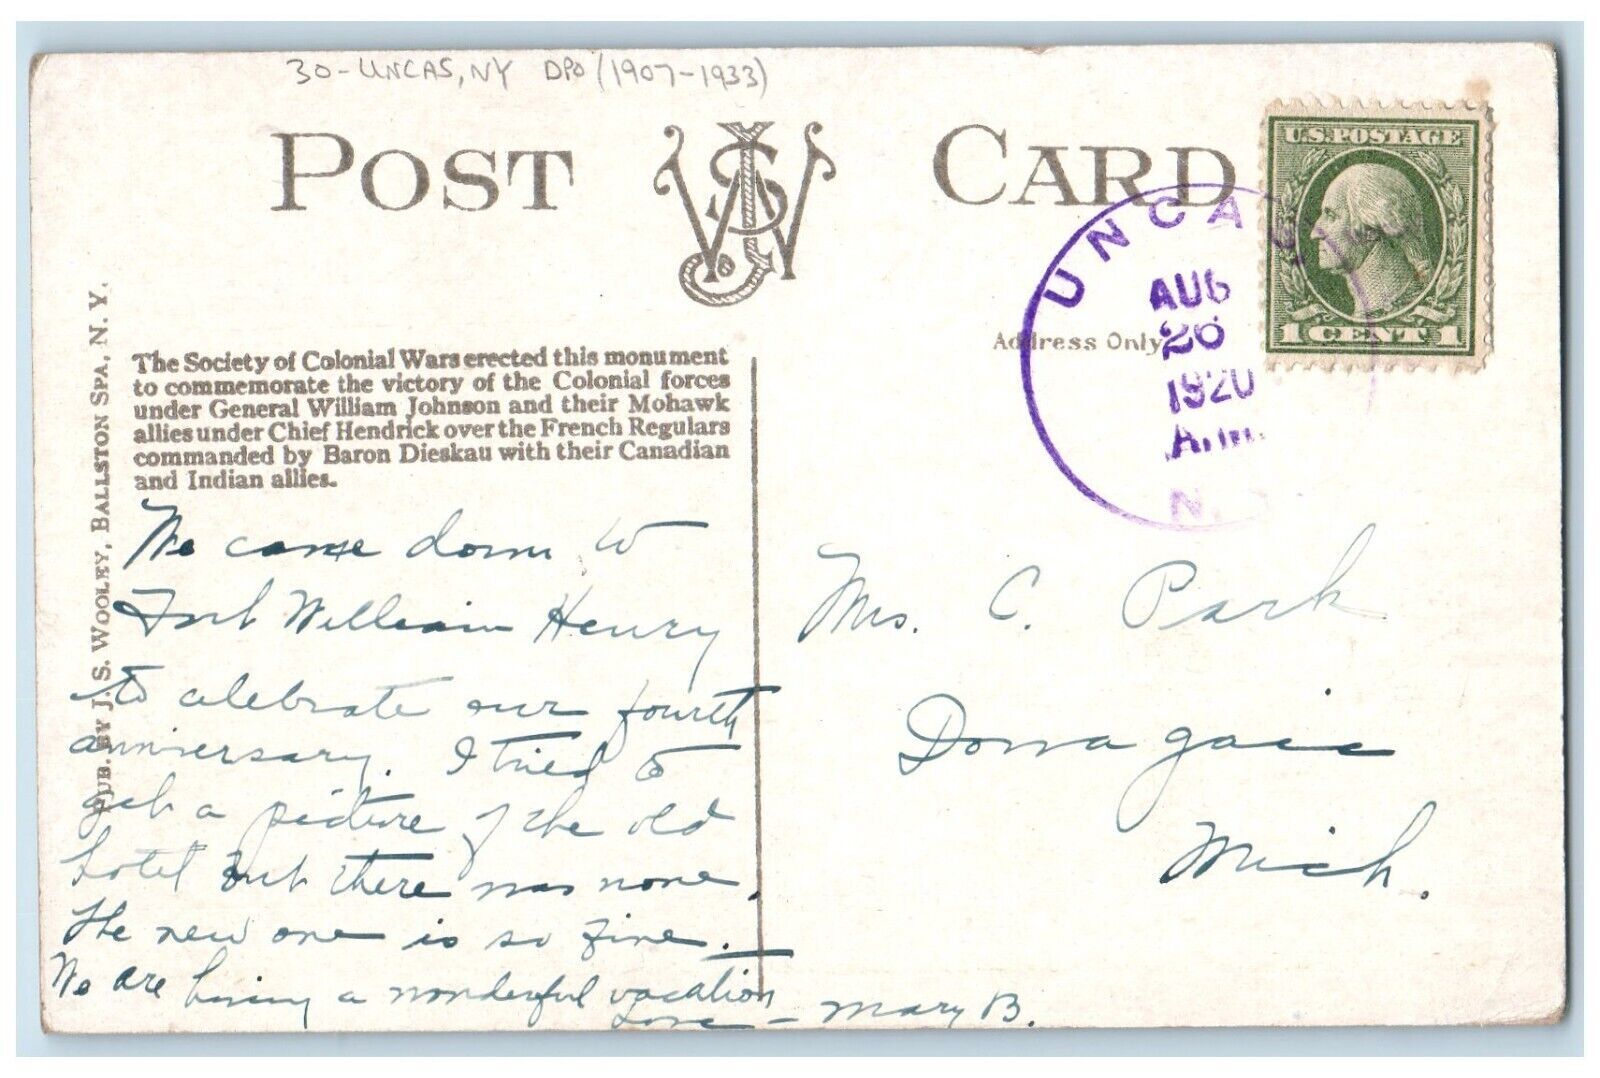 30-UNCAS, NY DPO (1907-1933)
POST CARD
U.S. POSTAGE
1 CENT 1
UNCAS
AUG
26
1920
A.M.
N.
Address Only
PUB. BY J. S. WOOLEY, BALLSTON SPA, N. Y.
The Society of Colonial Wars erected this monument
to commemorate the victory of the Colonial forces
under General William Johnson and their Mohawk
allies under Chief Hendrick over the French Regulars
commanded by Baron Dieskau with their Canadian
and Indian allies.
We came down to
Fort William Henry
to celebrate our fourth
anniversary. I tried to
get a picture of the old
hotel but there was none.
The new one is so fine.
We are having a wonderful vacation
Love – Mary B.
Mrs. C. Park
Dowagaic
Mich.